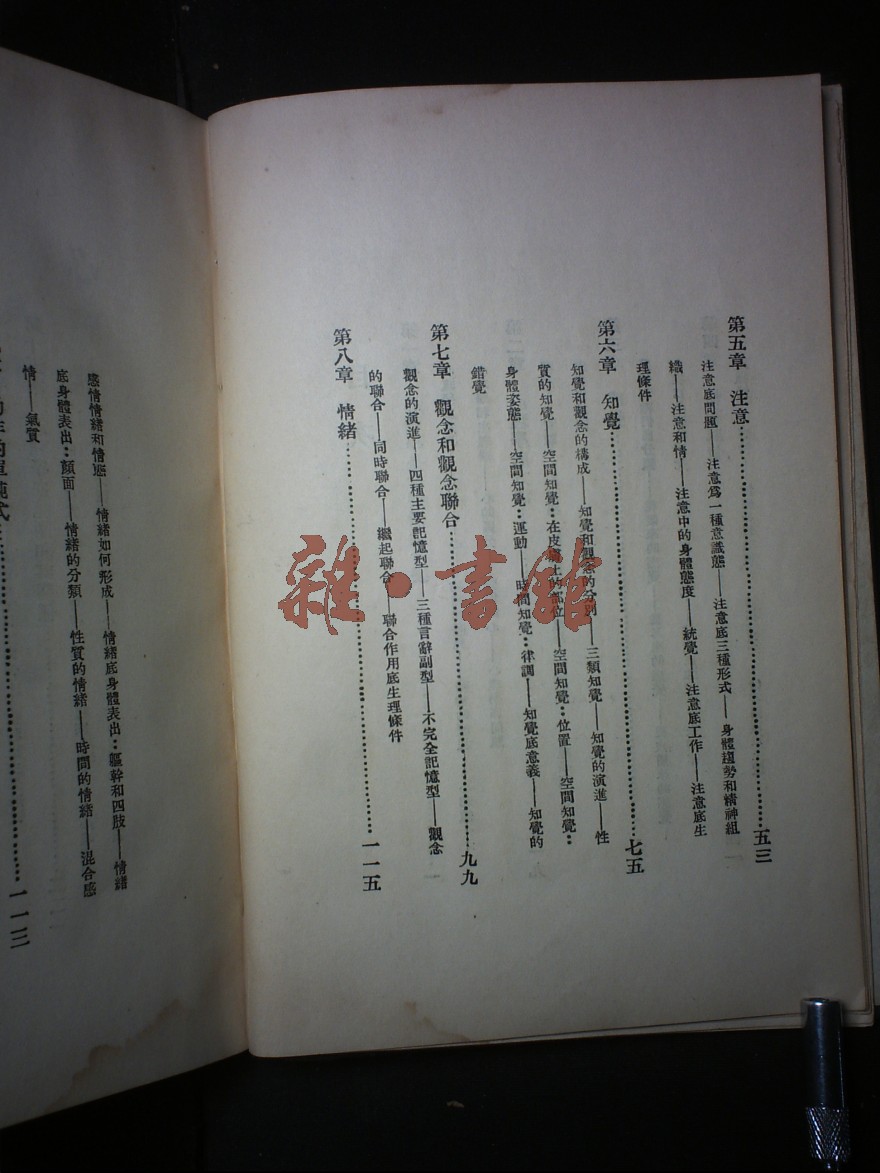 第五章 注意……五三
注意底問題——注意爲一種意識態——注意底三種形式——身體趨勢和精神組
織——注意和情——注意中的身體態度——統覺——注意底工作——注意底生
理條件
第六章 知覺……七五
知覺和觀念的構成——知覺和觀念的分別——三類知覺——知覺的演進——性
質的知覺——空間知覺：在皮膚上的部位——空間知覺：位置——空間知覺：
身體姿態——空間知覺：運動——時間知覺：律調——知覺底意義——知覺的
錯覺
第七章 觀念和觀念聯合……九九
觀念的演進——四種主要記憶型——三種言辭副型——不完全記憶型——觀念
的聯合——同時聯合——繼起聯合——聯合作用底生理條件
第八章 情緒……一一五
感情情緒和情態——情緒如何形成——情緒底身體表出：軀幹和四肢——情緒
底身體表出：顏面——情緒的分類——性質的情緒——時間的情緒——混合感
情——氣質
動作的單純式……一一三
雜·書館